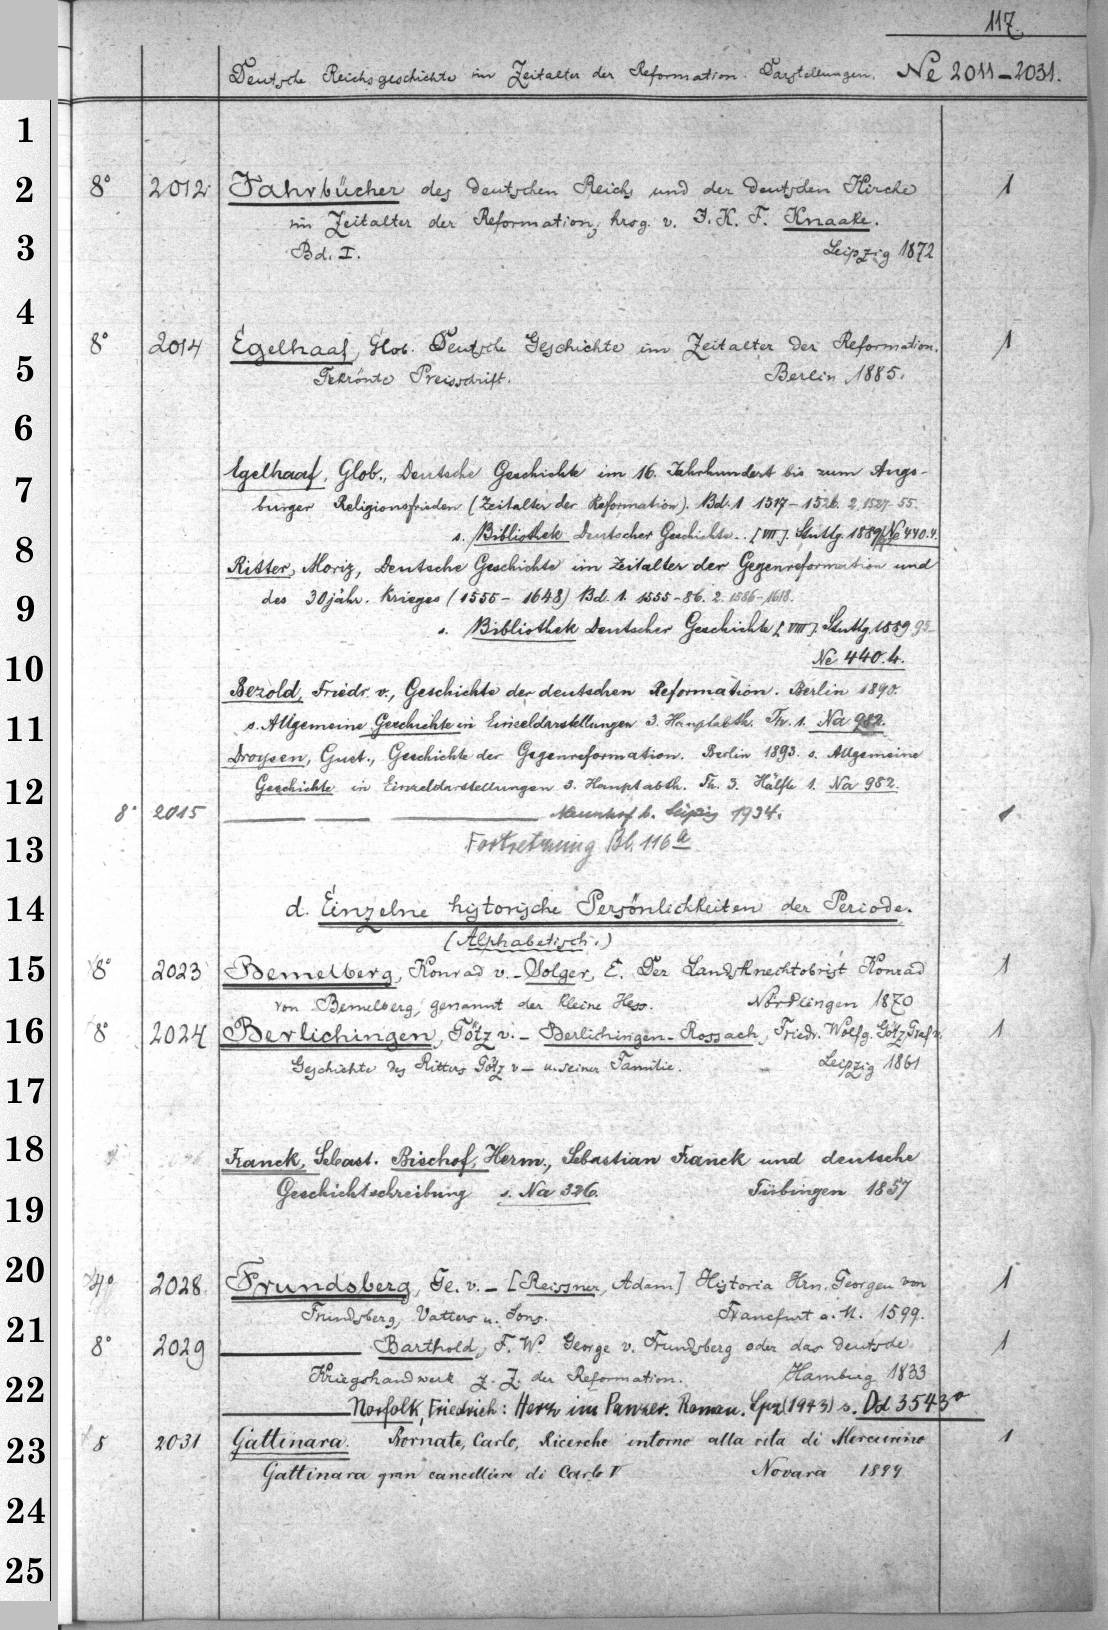 117.
Deutsche Reichsgeschichte im Zeitalter der Reformation. Darstellungen. Ne 2011–2031.
1
2
8° 2012. Jahrbücher des deutschen Reichs und der deutschen Kirche 1
im Zeitalter der Reformation, hrsg. v. J. K. F. Knaake.
3
Bd. I. Leipzig 1872
4
8° 2014 Egelhaaf, Glob. Deutsche Geschichte im Zeitalter der Reformation. 1
5
Gekrönte Preisschrift. Berlin 1885.
6
Egelhaaf, Glob., Deutsche Geschichte im 16. Jahrhundert bis zum Augs-
7
burger Religionsfrieden (Zeitalter der Reformation). Bd. 1 1517–1526. 2. 1527–55.
8
s. Bibliothek Deutscher Geschichte.. [VII]. Stuttg. 1889 Ne 440.4.
Ritter, Moriz, Deutsche Geschichte im Zeitalter der Gegenreformation und
9
des 30jähr. Krieges (1555–1648) Bd. 1. 1555–86. 2. 1586–1618.
s. Bibliothek Deutscher Geschichte [VIII]. Stuttg. 1889.95
10
Ne 440.4.
Bezold, Friedr. v., Geschichte der deutschen Reformation. Berlin 1890.
11
s. Allgemeine Geschichte in Einzeldarstellungen 3. Hauptabth. Th. 1. Na 982.
Droysen, Gust., Geschichte der Gegenreformation. Berlin 1893. s. Allgemeine
12
Geschichte in Einzeldarstellungen 3. Hauptabth. Th. 3. Hälfte 1. Na 982.
8° 2015 ——— ——— ——— Naunhof b. Leipzig 1934. 1
13
Fortsetzung Bl. 116a
14
d. Einzelne historische Persönlichkeiten der Periode.
(Alphabetisch.)
15
8° 2023 Bemelberg, Konrad v. – Solger, E. Der Landsknechtobrist Konrad 1
von Bemelberg, genannt der kleine Hess. Nördlingen 1870
16
8° 2024 Berlichingen, Götz v. – Berlichingen-Rossach, Friedr. Wolfg. Götz Graf v. 1
Geschichte des Ritters Götz v – u. seiner Familie. Leipzig 1861
17
18
Franck, Sebast. Bischof, Herm., Sebastian Franck und deutsche
Geschichtschreibung s. Na 326. Tübingen 1857
19
20
4° 2028. Frundsberg, Ge. v. – [Reissner, Adam] Historia Hrn. Georgen von 1
Frundsberg, Vatters u. Sons. Francfurt a. M. 1599.
21
8° 2029 ——— Barthold, F. W. George v. Frundsberg oder das deutsche 1
Kriegshandwerk z. Z. der Reformation. Hamburg 1833
22
——— Norfolk, Friedrich: Herz im Panzer. Roman. Lpz (1943) s. Dd 3543°
23
8 2031 Gattinara. Bornate, Carlo, Ricerche intorno alla vita di Mercurino 1
Gattinara gran cancelliere di Carlo V Novara 1899
24
25